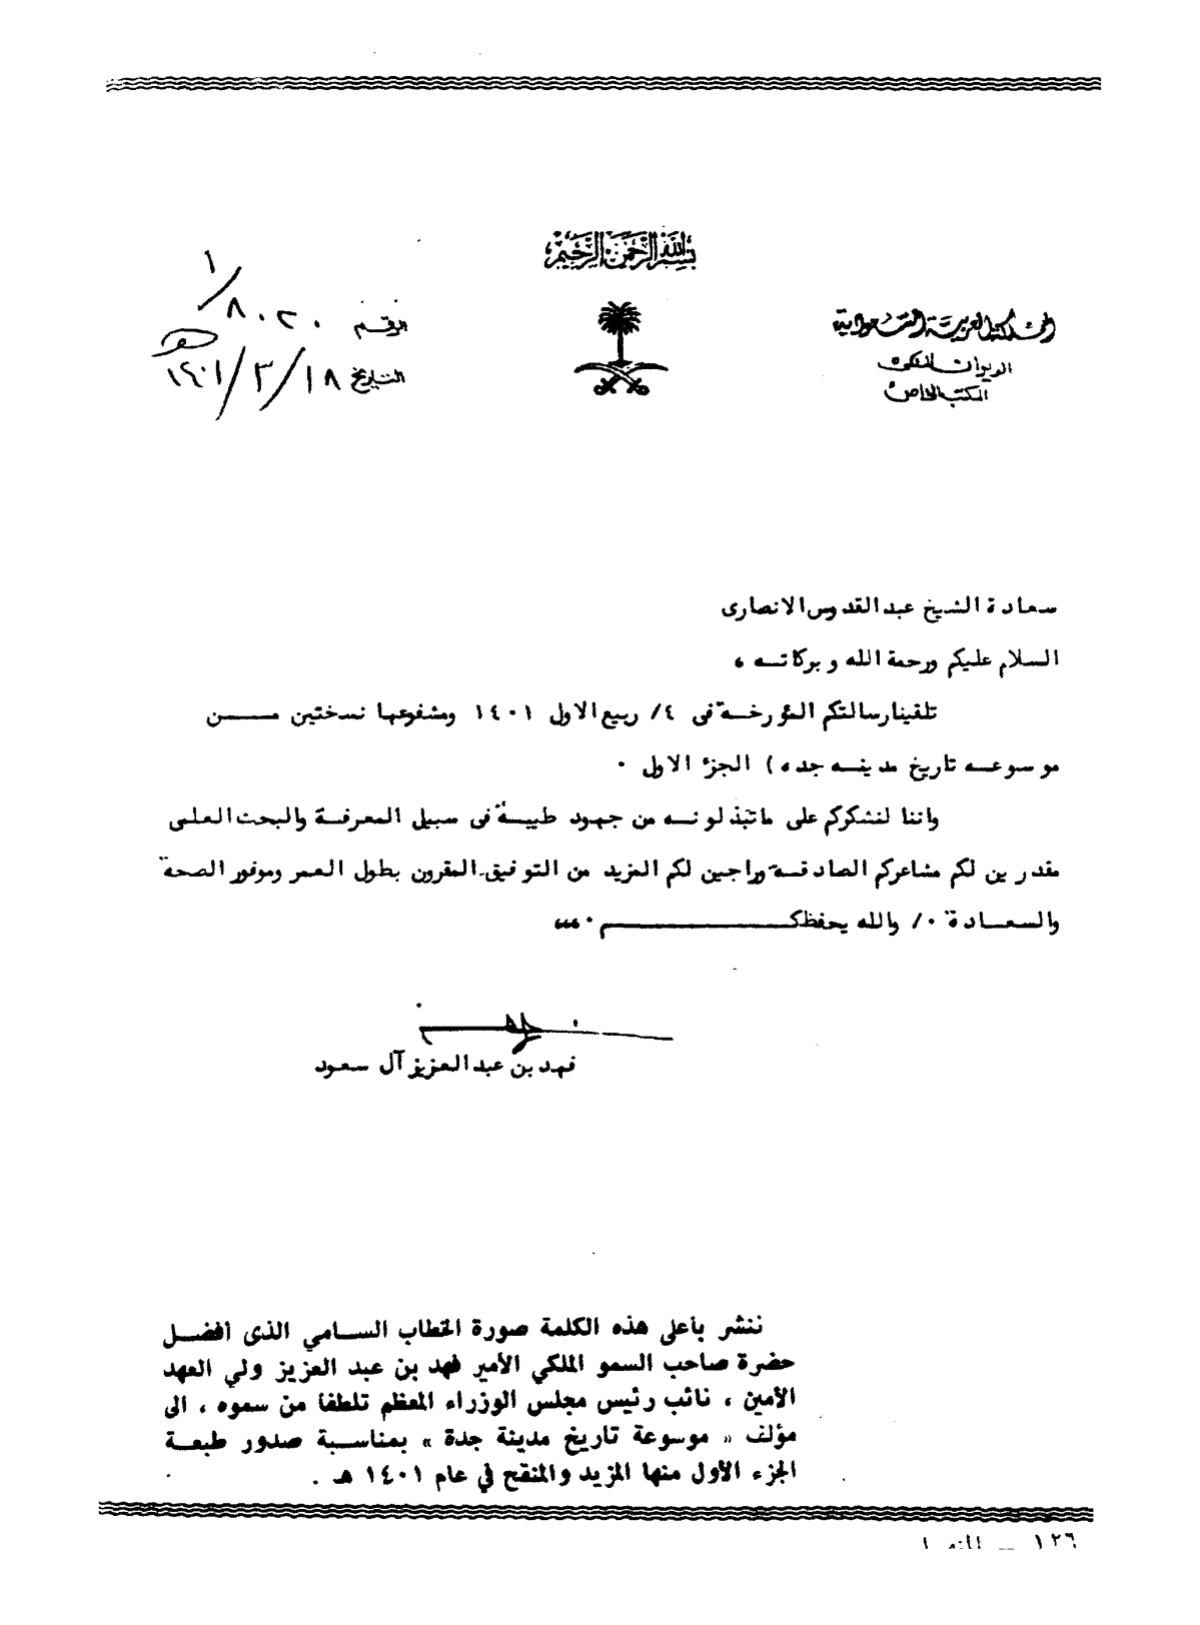 بسم الله الرحمن الرحيم
المملكة العربية السعودية
الديوان الملكي
المكتب الخاص
الرقم ٨٠٢٠/١
التاريخ ١٨/٣/١٤٠١هـ
سعادة الشيخ عبد القدوس الانصارى
السلام عليكم ورحمة الله وبركاته ،
تلقينا رسالتكم المؤرخة فى ٤/ ربيع الاول ١٤٠١ ومشفوعها نسختين مــــن
موسوعه تاريخ مدينه جده ) الجزء الاول ٠
واننا لنشكركم على ماتبذلونه من جهود طيبة فى سبيل المعرفة والبحث العلمى
مقدرين لكم مشاعركم الصادقة وراجين لكم المزيد من التوفيق المقرون بطول العمر وموفور الصحة
والسعـــادة ٠/ والله يحفظكــــــــــــم ٠،،،
فهد بن عبد العزيز آل سعود
ننشر بأعلى هذه الكلمة صورة الخطاب الســـامي الذى أفضـــل
حضرة صاحب السمو الملكي الأمير فهد بن عبد العزيز ولي العهد
الأمين ، نائب رئيس مجلس الوزراء المعظم تلطفا من سموه ، الى
مؤلف « موسوعة تاريخ مدينة جدة » بمناســـبة صدور طبعـــة
الجزء الأول منها المزيد والمنقح في عام ١٤٠١ هـ .
١٢٦ —